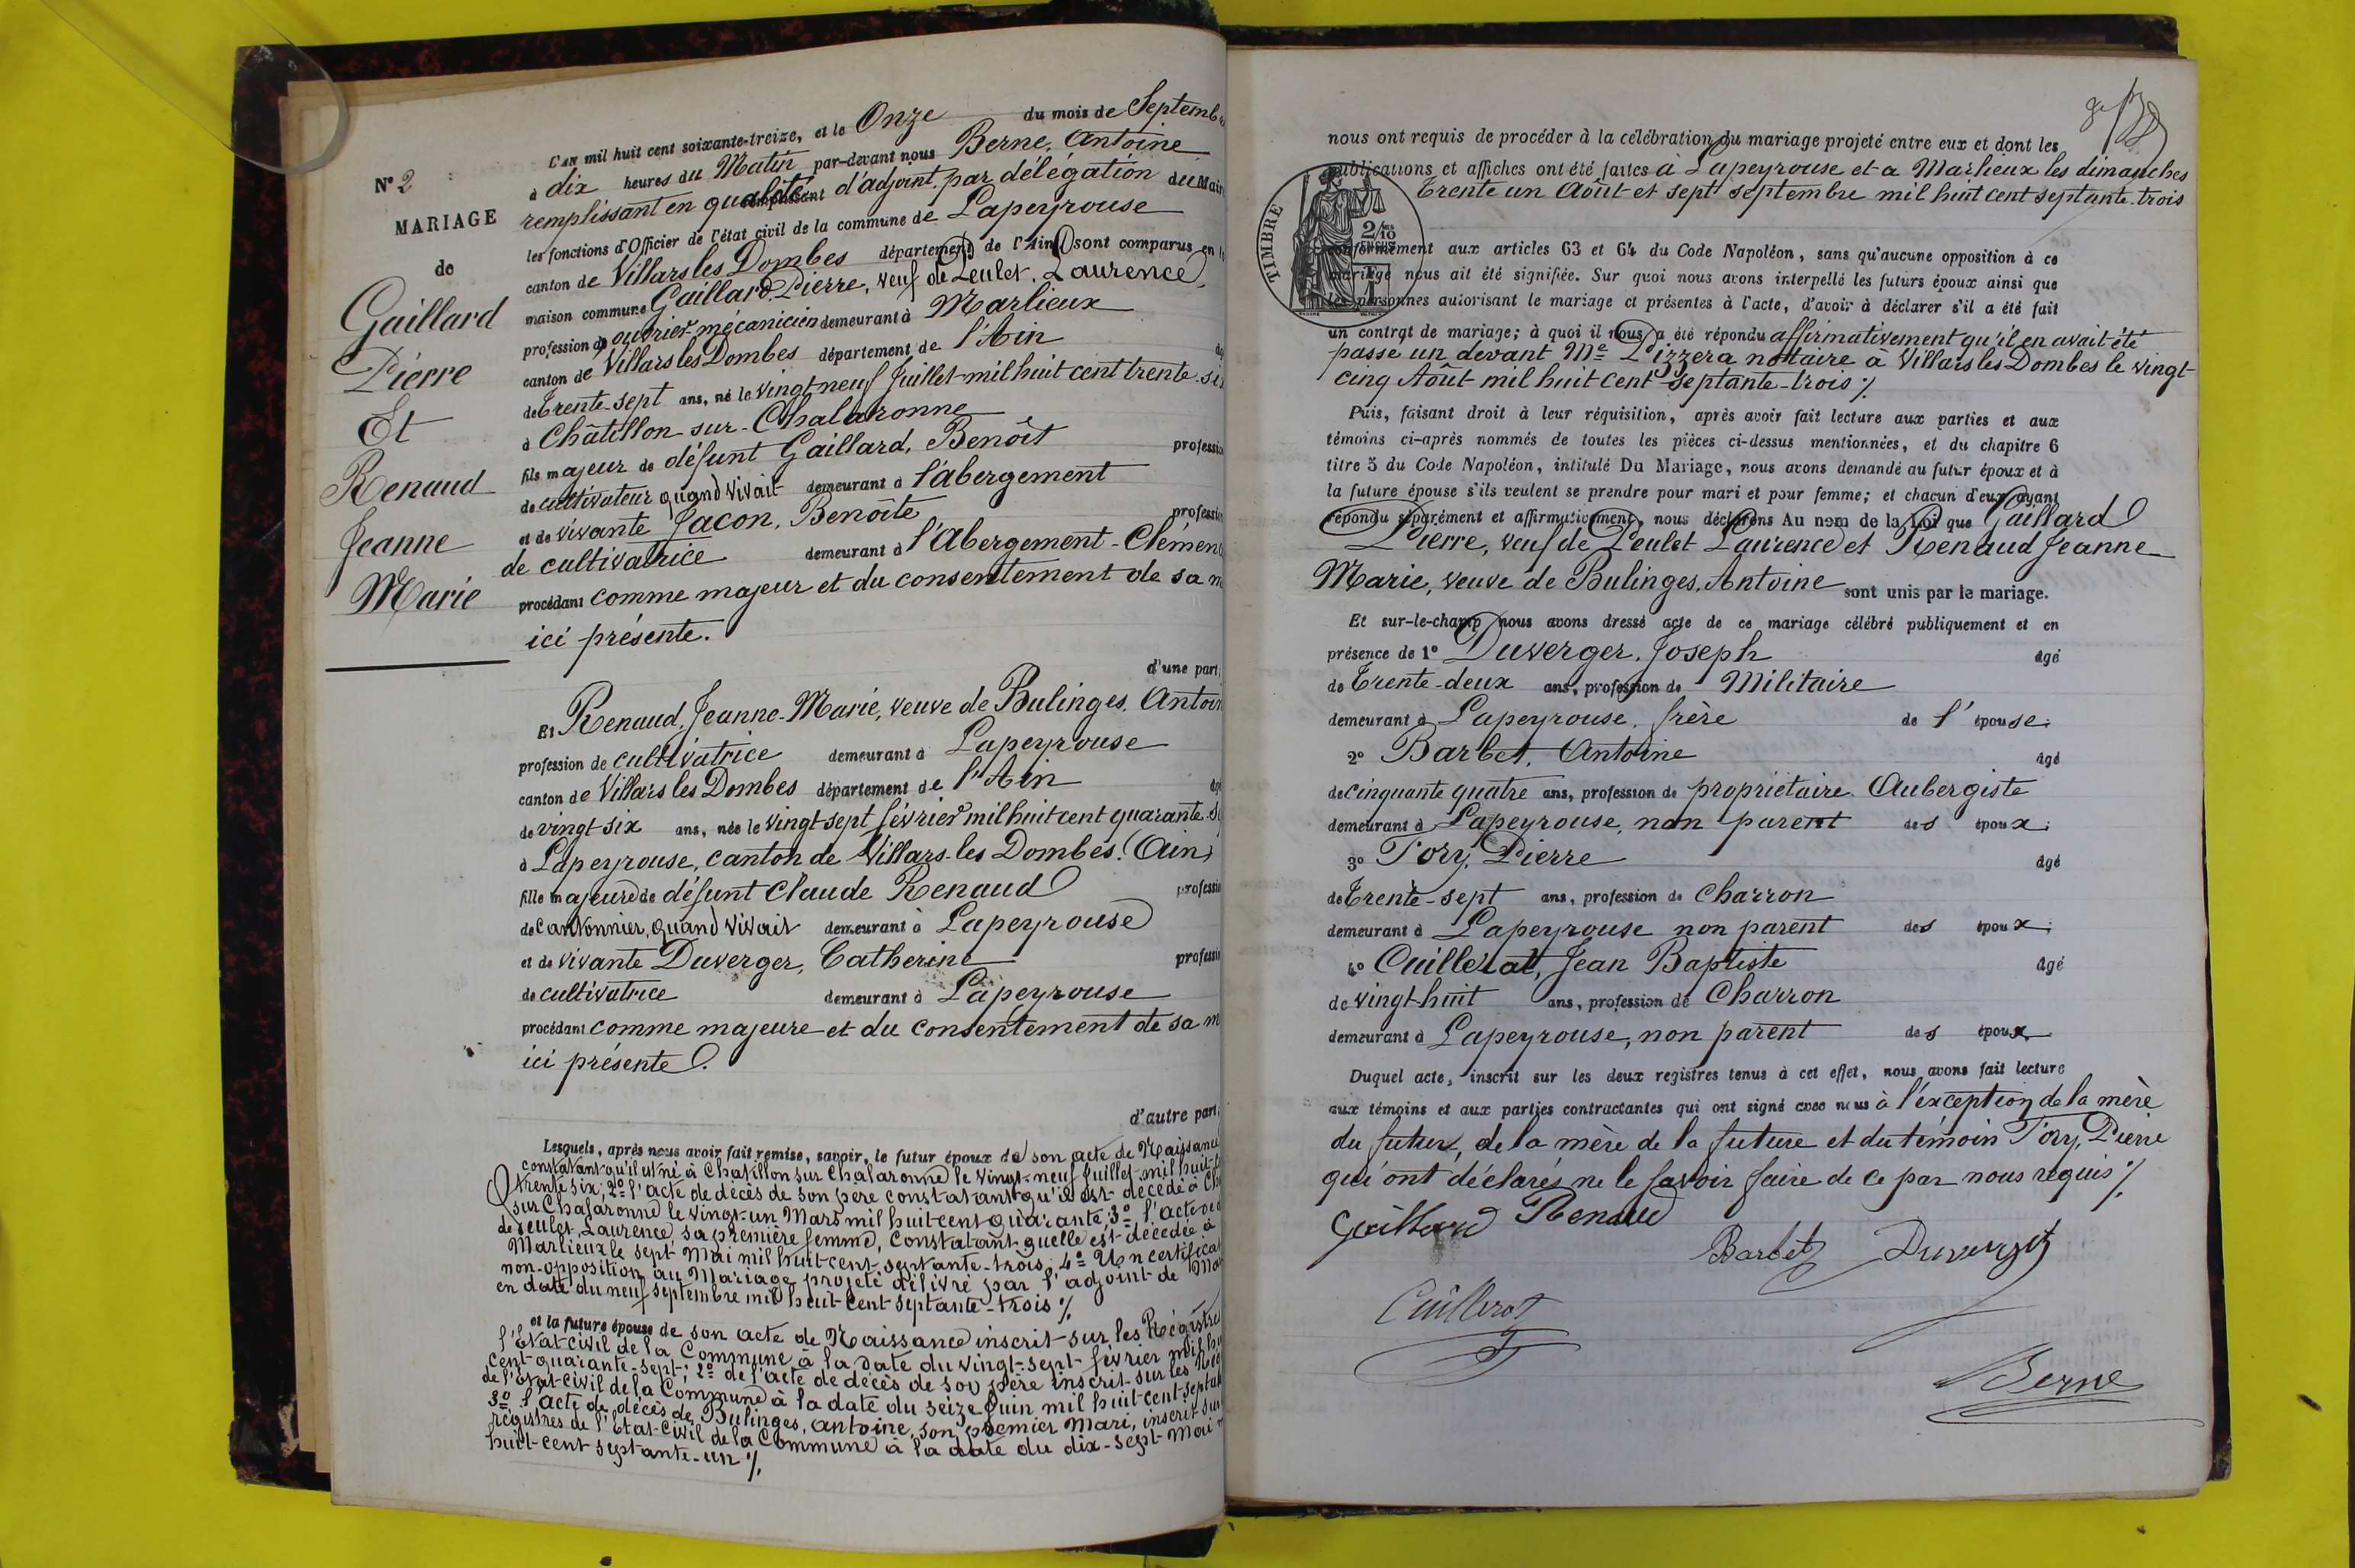 N° 2
MARIAGE
de
Gaillard
Pierre
Et
Renaud
Jeanne
Marie
L'AN mil huit cent soixante-treize, et le Onze du mois de Septemb
à dix heures du Matin par-devant nous Berne, Antoine
remplissant en qualité d'adjoint par délégation du Mair
les fonctions d'Officier de l'état civil de la commune de Lapeyrouse
canton de Villars les Dombes département de l'Ain sont comparus en
maison commune Gaillard Pierre, veuf de Peulet, Laurence,
profession de ouvrier-mécanicien demeurant à Marlieux
canton de Villars les Dombes département de l'Ain
de Trente-sept ans, né le vingt neuf Juillet mil huit cent trente-si
à Châtillon-sur-Chalaronne
fils majeur de défunt Gaillard, Benoît professio
de cultivateur quand vivait demeurant à l'abergement
et de vivante Jacon, Benoîte professio
de cultivatrice demeurant à l'Abergement-Clémen
procédant comme majeur et du consentement de sa m
ici présente.
d'une part,
Et Renaud, Jeanne-Marie, veuve de Bulinges, Antoin
profession de cultivatrice demeurant à Lapeyrouse
canton de Villars les Dombes département de l'Ain
de vingt-six ans, née le vingt-sept février mil huit cent quarante-s
à Lapeyrouse, canton de Villars-les Dombes. (Ain)
fille majeure de défunt Claude Renaud professio
de Cantonnier, quand vivait demeurant à Lapeyrouse
et de vivante Duverger, Catherine professio
de cultivatrice demeurant à Lapeyrouse
procédant comme majeure et du consentement de sa m
ici présente.
d'autre part,
Lesquels, après nous avoir fait remise, savoir, le futur époux de son acte de Naissance
constatant qu'il est né à Chatillon sur Chalaronne le vingt-neuf Juillet mil huit
trente six; 2° l'acte de décès de son père constatant qu'il est décédé à Ch
sur Chalaronne le vingt-un Mars mil huit cent quarante; 3° l'acte de
de Peulet, Laurence, sa première femme, constatant quelle est décédée à
Marlieux le sept Mai mil huit-cent-septante-trois; 4° Un certificat
non-opposition au Mariage projeté délivré par l'adjoint de Mar
en date du neuf septembre mil huit-cent septante-trois %
et la future épouse de son acte de Naissance inscrit sur les Régistres
l'Etat-civil de la Commune à la date du vingt-sept février mil hu
cent-quarante-sept; 2° de l'acte de décès de son père inscrit-sur les Rég
de l'Etat-civil de la Commune à la date du seize Juin mil huit-cent-septan
3° l'acte de décès de Bulinges, antoine, son premier Mari, inscrit sur
régistres de l'Etat-civil de la Commune à la date du dix-sept-Mai
huit-cent septante-un %
nous ont requis de procéder à la célébration du mariage projeté entre eux et dont les
publications et affiches ont été faites à Lapeyrouse et a Marlieux les dimanches
trente un Août et sept septembre mil huit cent septante-trois
TIMBRE
2/10
EN SUS
conformément aux articles 63 et 64 du Code Napoléon, sans qu'aucune opposition à ce
mariage nous ait été signifiée. Sur quoi nous avons interpellé les futurs époux ainsi que
les personnes autorisant le mariage et présentes à l'acte, d'avoir à déclarer s'il a été fait
un contrat de mariage; à quoi il nous a été répondu affirmativement qu'il en avait été
passé un devant Me Pizzera notaire à Villars les Dombes le vingt-
cinq Août mil huit cent septante-trois %
Puis, faisant droit à leur réquisition, après avoir fait lecture aux parties et aux
témoins ci-après nommés de toutes les pièces ci-dessus mentionnées, et du chapitre 6
titre 5 du Code Napoléon, intitulé Du Mariage, nous avons demandé au futur époux et à
la future épouse s'ils veulent se prendre pour mari et pour femme; et chacun d'eux ayant
répondu séparément et affirmativement, nous déclarons Au nom de la Loi que Gaillard
Pierre, veuf de Peulet Laurence et Renaud Jeanne
Marie, veuve de Bulinges, Antoine sont unis par le mariage.
Et sur-le-champ nous avons dressé acte de ce mariage célébré publiquement et en
présence de 1° Duverger, Joseph âgé
de Trente-deux ans, profession de Militaire
demeurant à Lapeyrouse, frère de l'épouse;
2° Barbet, Antoine âgé
de cinquante quatre ans, profession de propriétaire Aubergiste
demeurant à Lapeyrouse, non parent des époux;
3° Tory, Pierre âgé
de Trente-sept ans, profession de charron
demeurant à Lapeyrouse non parent des époux;
4° Cuillerat, Jean Baptiste âgé
de vingt-huit ans, profession de Charron
demeurant à Lapeyrouse, non parent des époux
Duquel acte, inscrit sur les deux registres tenus à cet effet, nous avons fait lecture
aux témoins et aux parties contractantes qui ont signé avec nous à l'exception de la mère
du futur, de la mère de la future et du témoin Tory, Pierre
qui ont déclarés ne le savoir faire de ce par nous requis %
Gaillard Renaud
Barbet Duverger
Cuillerat
Berne